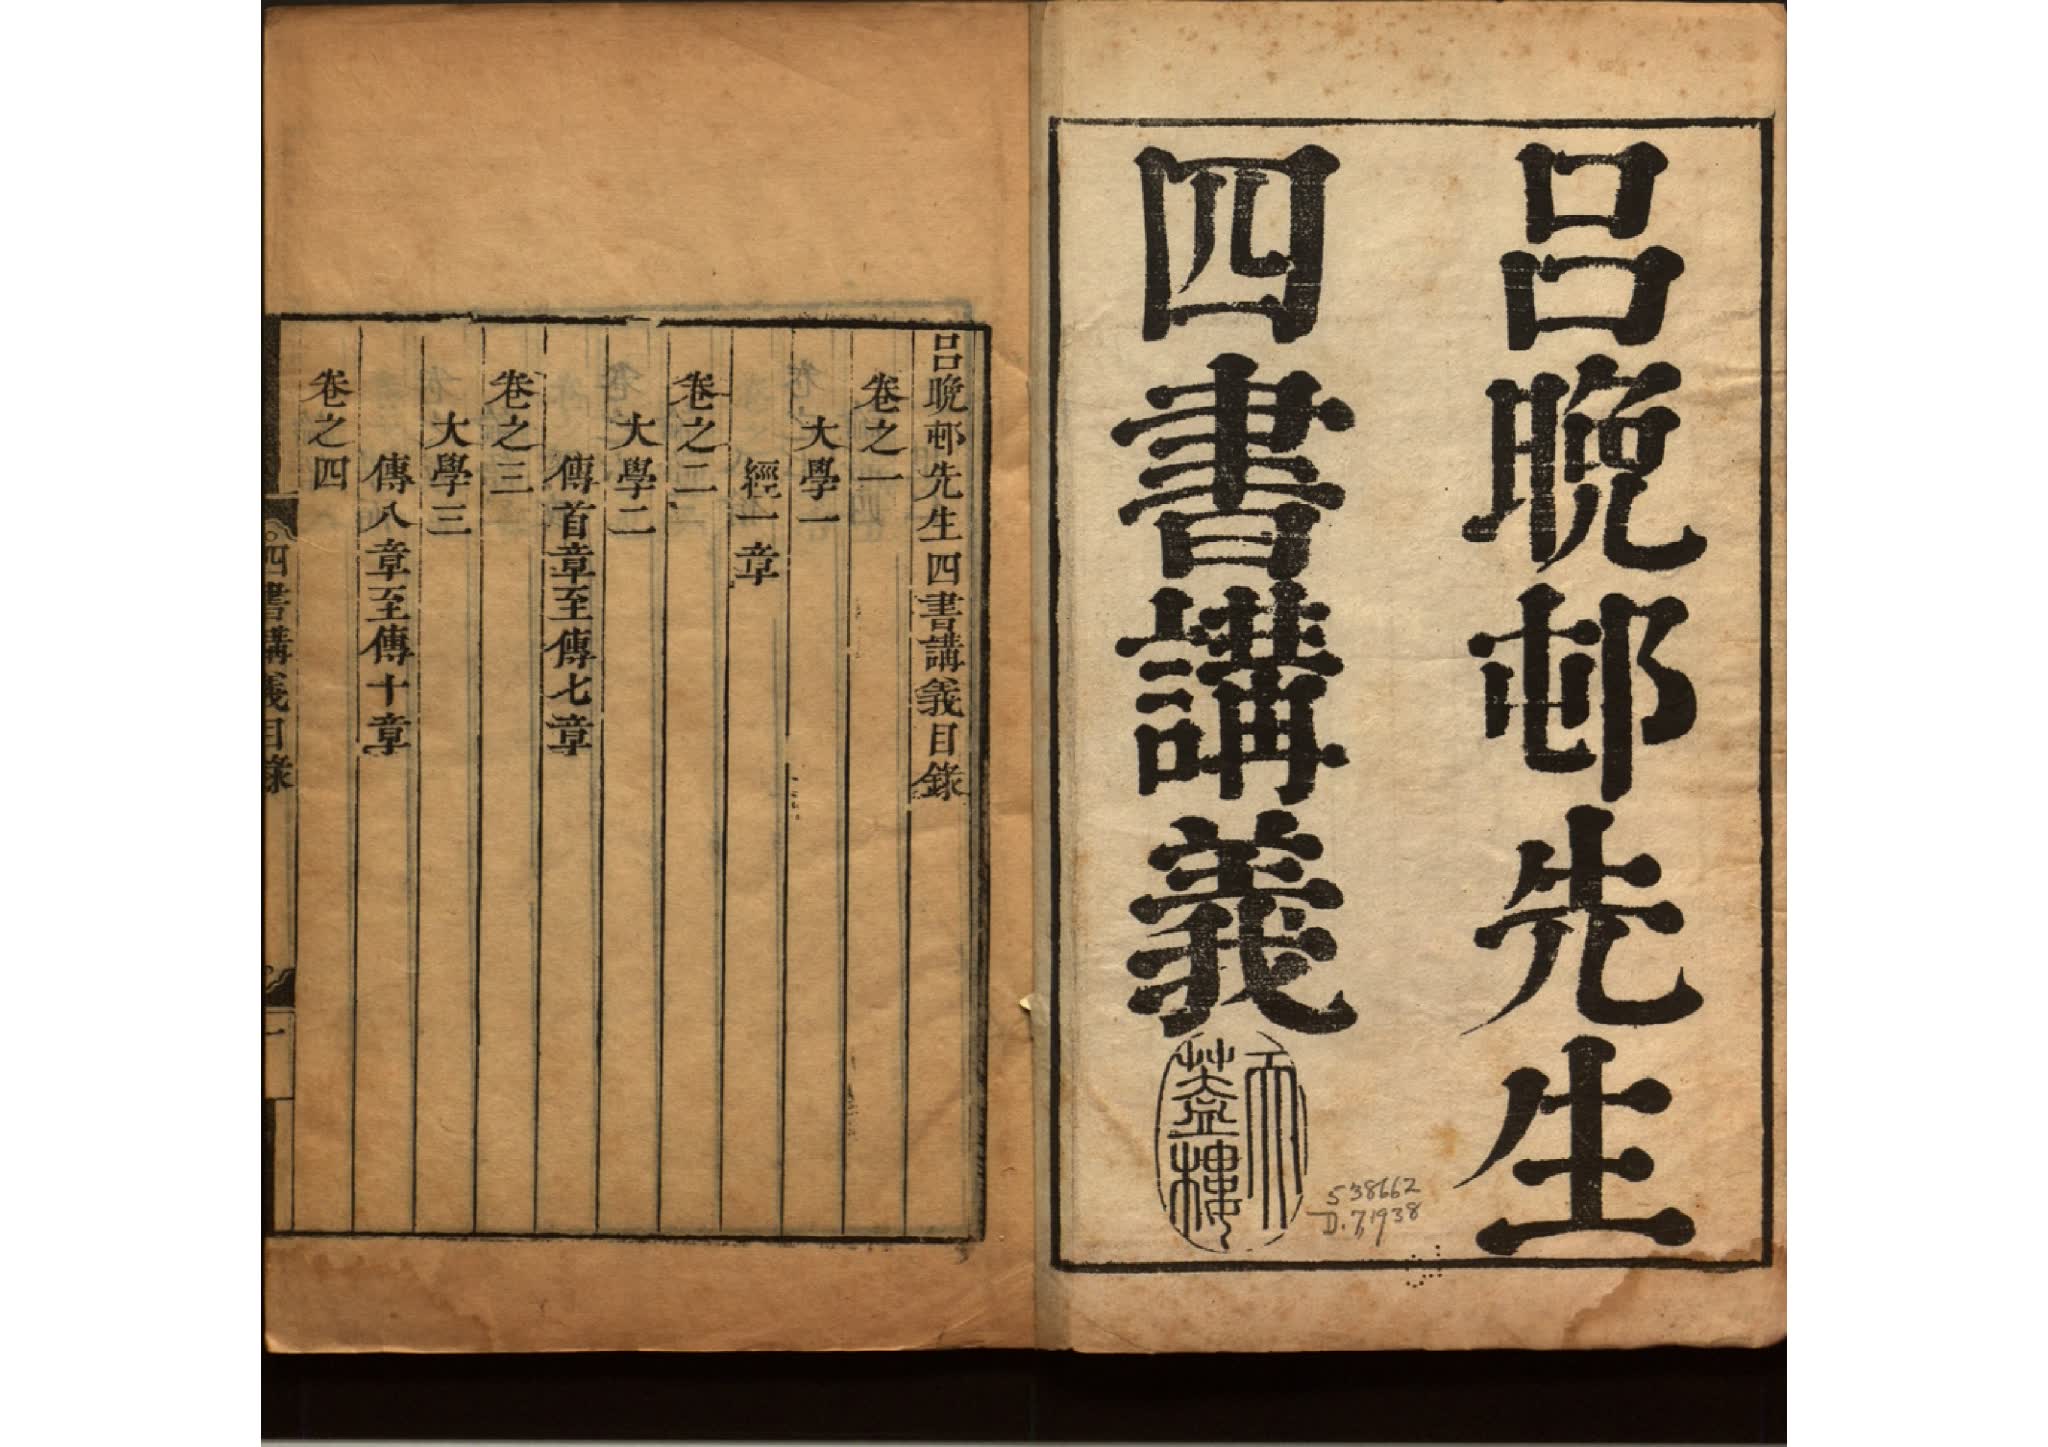 呂晚邨先生
四書講義
天
蓋樓
538662
D.7,1938
呂晚邨先生四書講義目錄
卷之一
大學一
經一章
卷之二
大學二
傳首章至傳七章
卷之三
大學三
傳八章至傳十章
卷之四
四書講義目錄
一